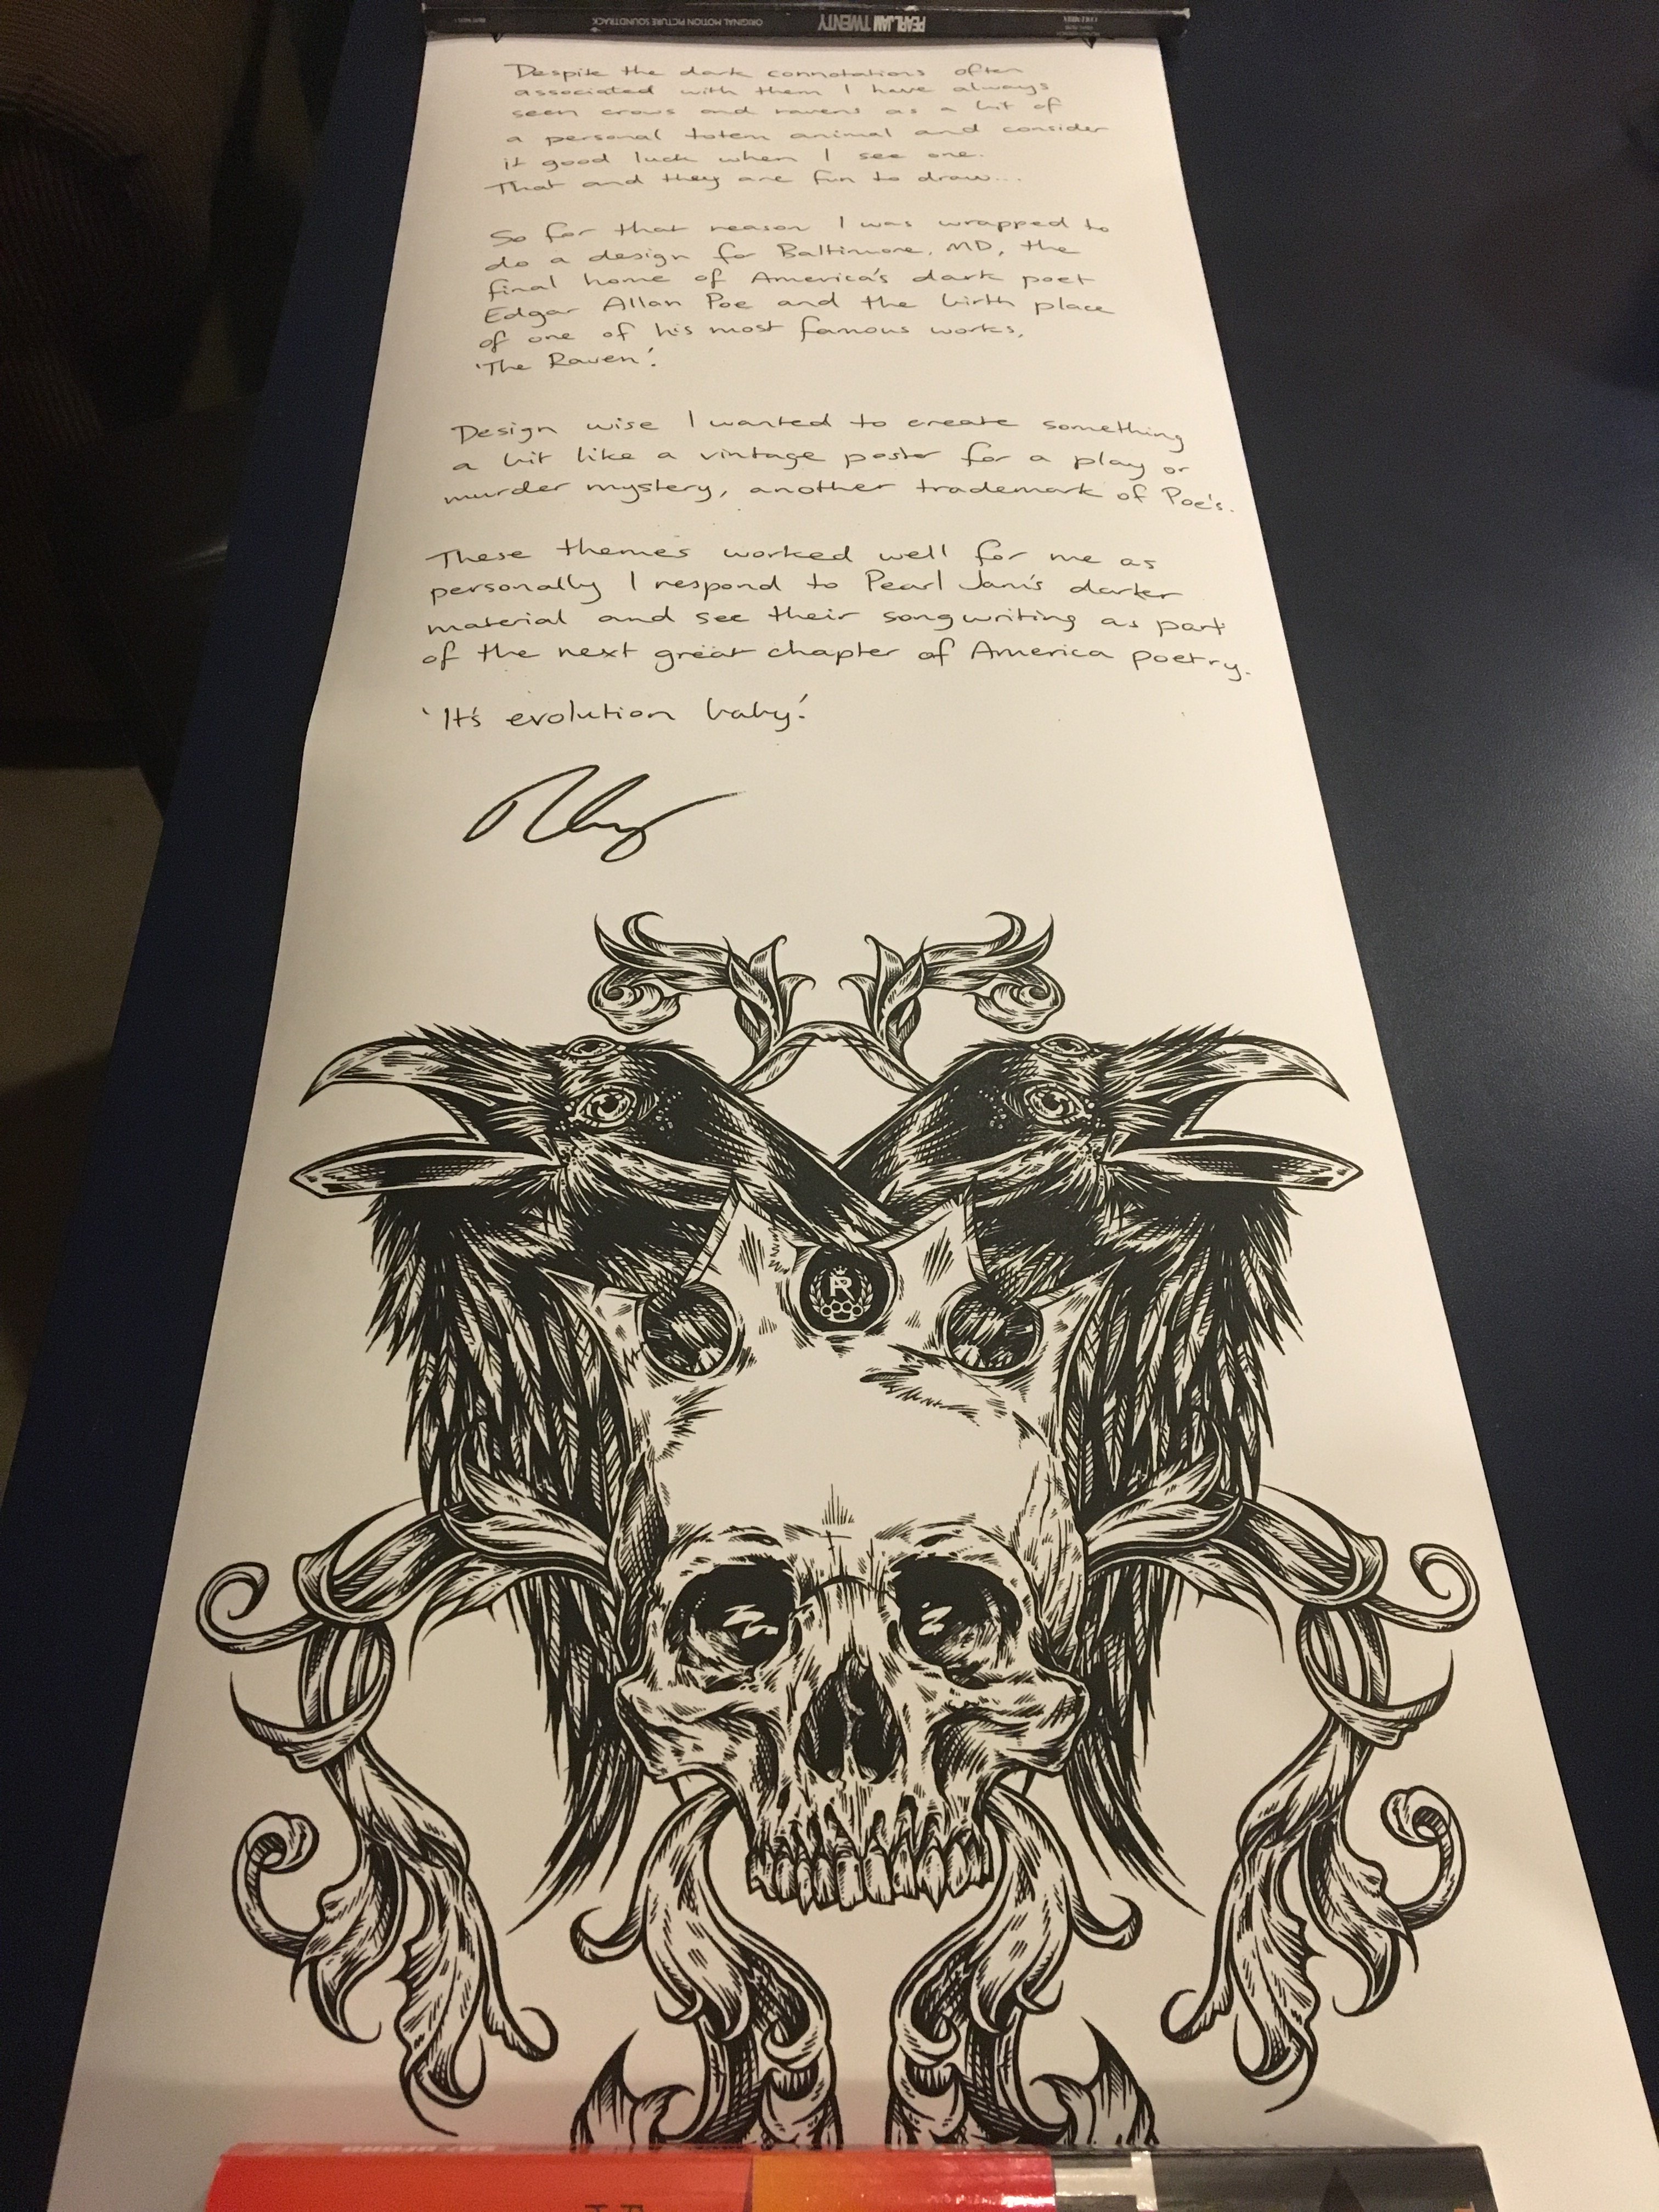 COLUMBIA
PEARL JAM TWENTY
ORIGINAL MOTION PICTURE SOUNDTRACK
Despite the dark connotations often
associated with them I have always
seen crows and ravens as a bit of
a personal totem animal and consider
it good luck when I see one.
That and they are fun to draw...
So for that reason I was wrapped to
do a design for Baltimore, MD, the
final home of America's dark poet
Edgar Allan Poe and the birth place
of one of his most famous works,
'The Raven'.
Design wise I wanted to create something
a bit like a vintage poster for a play or
murder mystery, another trademark of Poe's.
These themes worked well for me as
personally I respond to Pearl Jam's darker
material and see their songwriting as part
of the next great chapter of America poetry.
'It's evolution baby'.